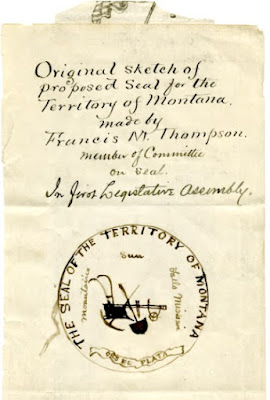 Original sketch of
proposed Seal for the
Territory of Montana.
made by
Francis M. Thompson.
member of Committee
on Seal.
In first Legislative Assembly.
THE SEAL OF THE TERRITORY OF MONTANA
Sun
Mountains
Falls Missouri
EL PLATA